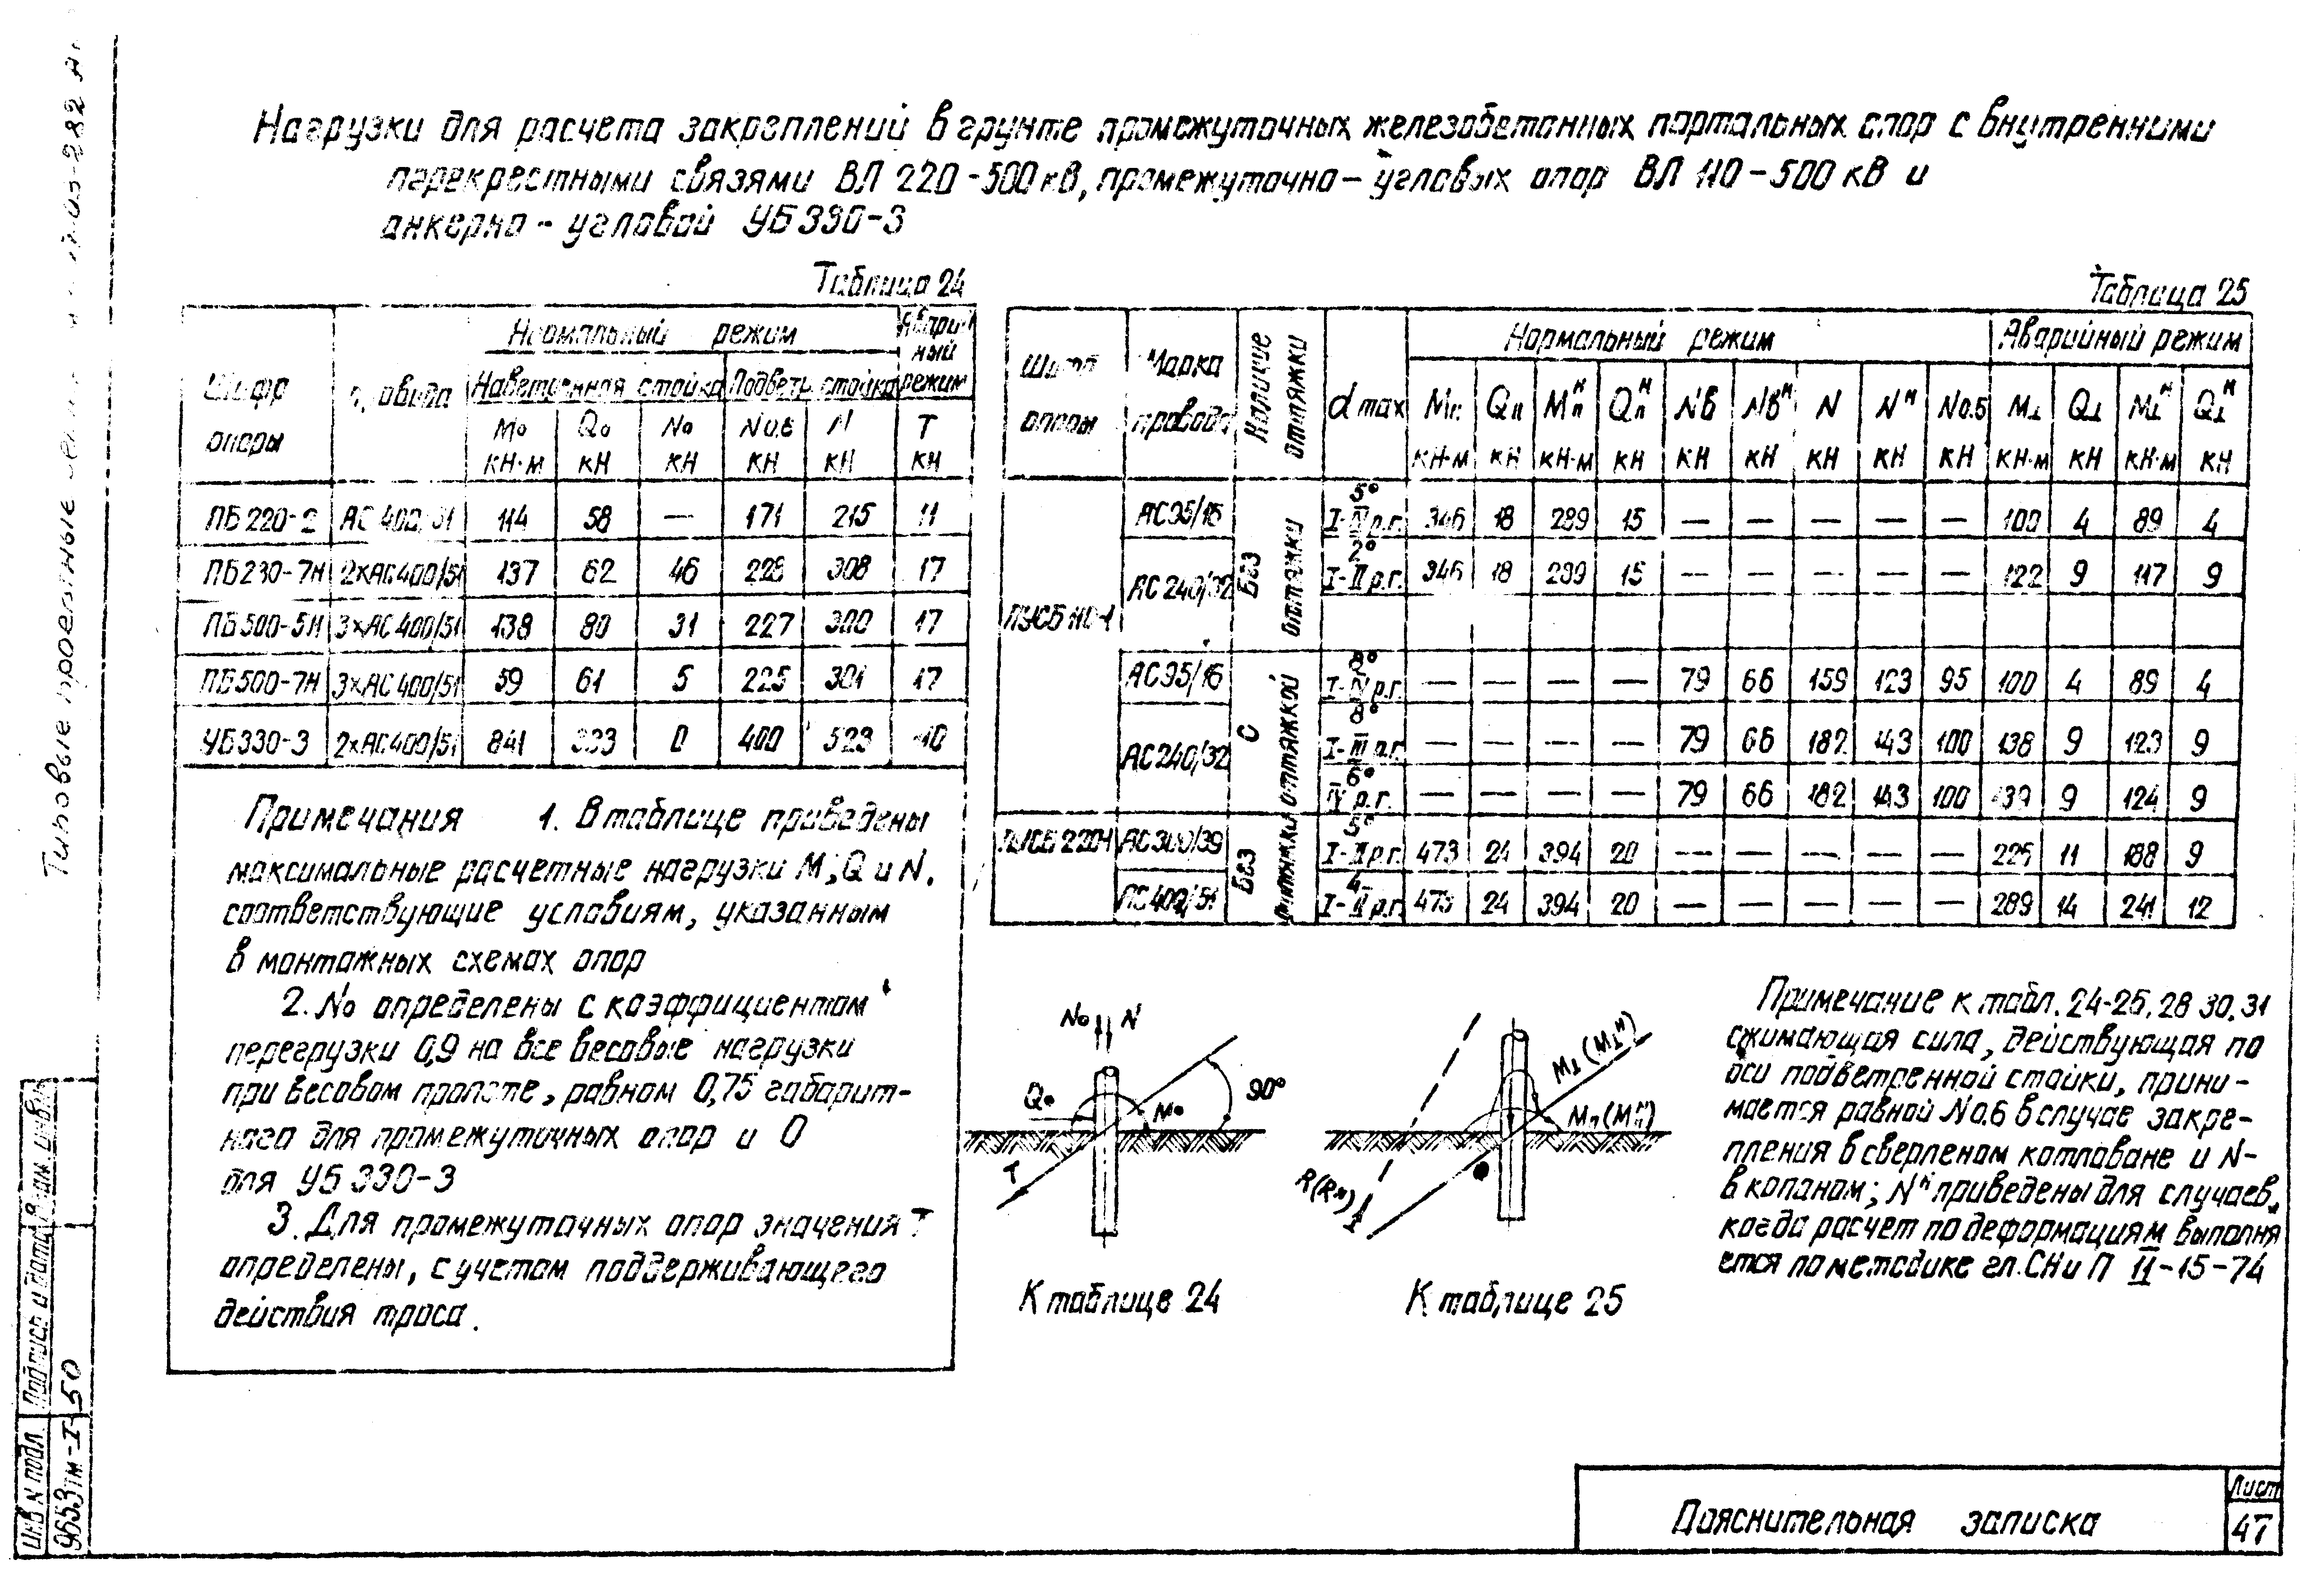 Нагрузки для расчета закреплений в грунте промежуточных железобетонных портальных опор с внутренними
перекрестными связями ВЛ 220-500 кВ, промежуточно-угловых опор ВЛ 110-500 кВ и
анкерно-угловой УБ 330-3
Таблица 24
Шифр опоры | провода | Нормальный режим | Аварий-ный режим
Наветренная стойка | Подветр. стойка
М₀ кН·м | Q₀ кН | N₀ кН | N0.6 кН | N кН | Т кН
ПБ220-2 | АС 400/51 | 114 | 58 | — | 171 | 215 | 11
2хАС400/51 | 137 | 62 | 46 | 228 | 308 | 17
ПБ500-5Н | 3хАС400/51 | 138 | 80 | 31 | 227 | 300 | 17
ПБ500-7Н | 3хАС400/51 | 59 | 61 | 5 | 225 | 301 | 17
УБ330-3 | 2хАС400/51 | 841 | 0 | 400 | 523
Примечания 1. В таблице приведены
максимальные расчетные нагрузки М, Q и N,
соответствующие условиям, указанным
в монтажных схемах опор
2. N₀ определены с коэффициентом
перегрузки 0,9 на все весовые нагрузки
при весовом пролете, равном 0,75 габарит-
ного для промежуточных опор и 0
для УБ 330-3
3. Для промежуточных опор значения Т
определены, с учетом поддерживающего
действия троса.
Таблица 25
Шифр опоры | Марка провода | Наличие оттяжки | d max | Нормальный режим | Аварийный режим
Мп кН·м | Qп кН | Мпᴴ кН·м | Qпᴴ кН | Nв кН | Nвᴴ кН | N кН | Nᴴ кН | N0.6 кН | М⊥ кН·м | Q⊥ кН | М⊥ᴴ кН·м | Q⊥ᴴ кН
ПУСБ110-1 | АС95/16 | Без оттяжки | 5° I-IV р.г. | 346 | 18 | 289 | 15 | — | — | — | — | — | 100 | 4 | 89 | 4
АС240/32 | 2° I-II р.г. | 346 | 18 | 289 | 15 | — | — | — | — | — | 122 | 9 | 117 | 9
АС95/16 | С оттяжкой | 8° I-IV р.г. | — | — | — | — | 79 | 66 | 159 | 123 | 95 | 100 | 4 | 89 | 4
АС240/32 | 8° I-III р.г. | — | — | — | — | 79 | 66 | 182 | 143 | 100 | 138 | 9 | 123 | 9
6° IV р.г. | — | — | — | — | 79 | 66 | 182 | 143 | 100 | 139 | 9 | 124 | 9
ПУСБ220-1 | АС300/39 | Без оттяжки | 5° I-II р.г. | 473 | 24 | 394 | 20 | — | — | — | — | — | 225 | 11 | 188 | 9
АС400/51 | 4° I-II р.г. | 473 | 24 | 394 | 20 | — | — | — | — | — | 289 | 14 | 241 | 12
N₀ N
Q₀ М₀ 90°
Т
К таблице 24
М⊥(М⊥ᴴ)
Мп(Мпᴴ)
R(Rᴴ)
К таблице 25
Примечание к табл. 24-25, 28 30, 31
сжимающая сила, действующая по
оси подветренной стойки, прини-
мается равной N0.6 в случае закре-
пления в сверленом котловане и N-
в копаном; Nᴴ приведены для случаев,
когда расчет по деформациям выполня
ется по методике гл. СНиП II-15-74
Пояснительная записка
Лист
47
Типовые проектные
Инв N подл. Подпись и дата Взам. инв. N
9653тм-I-50